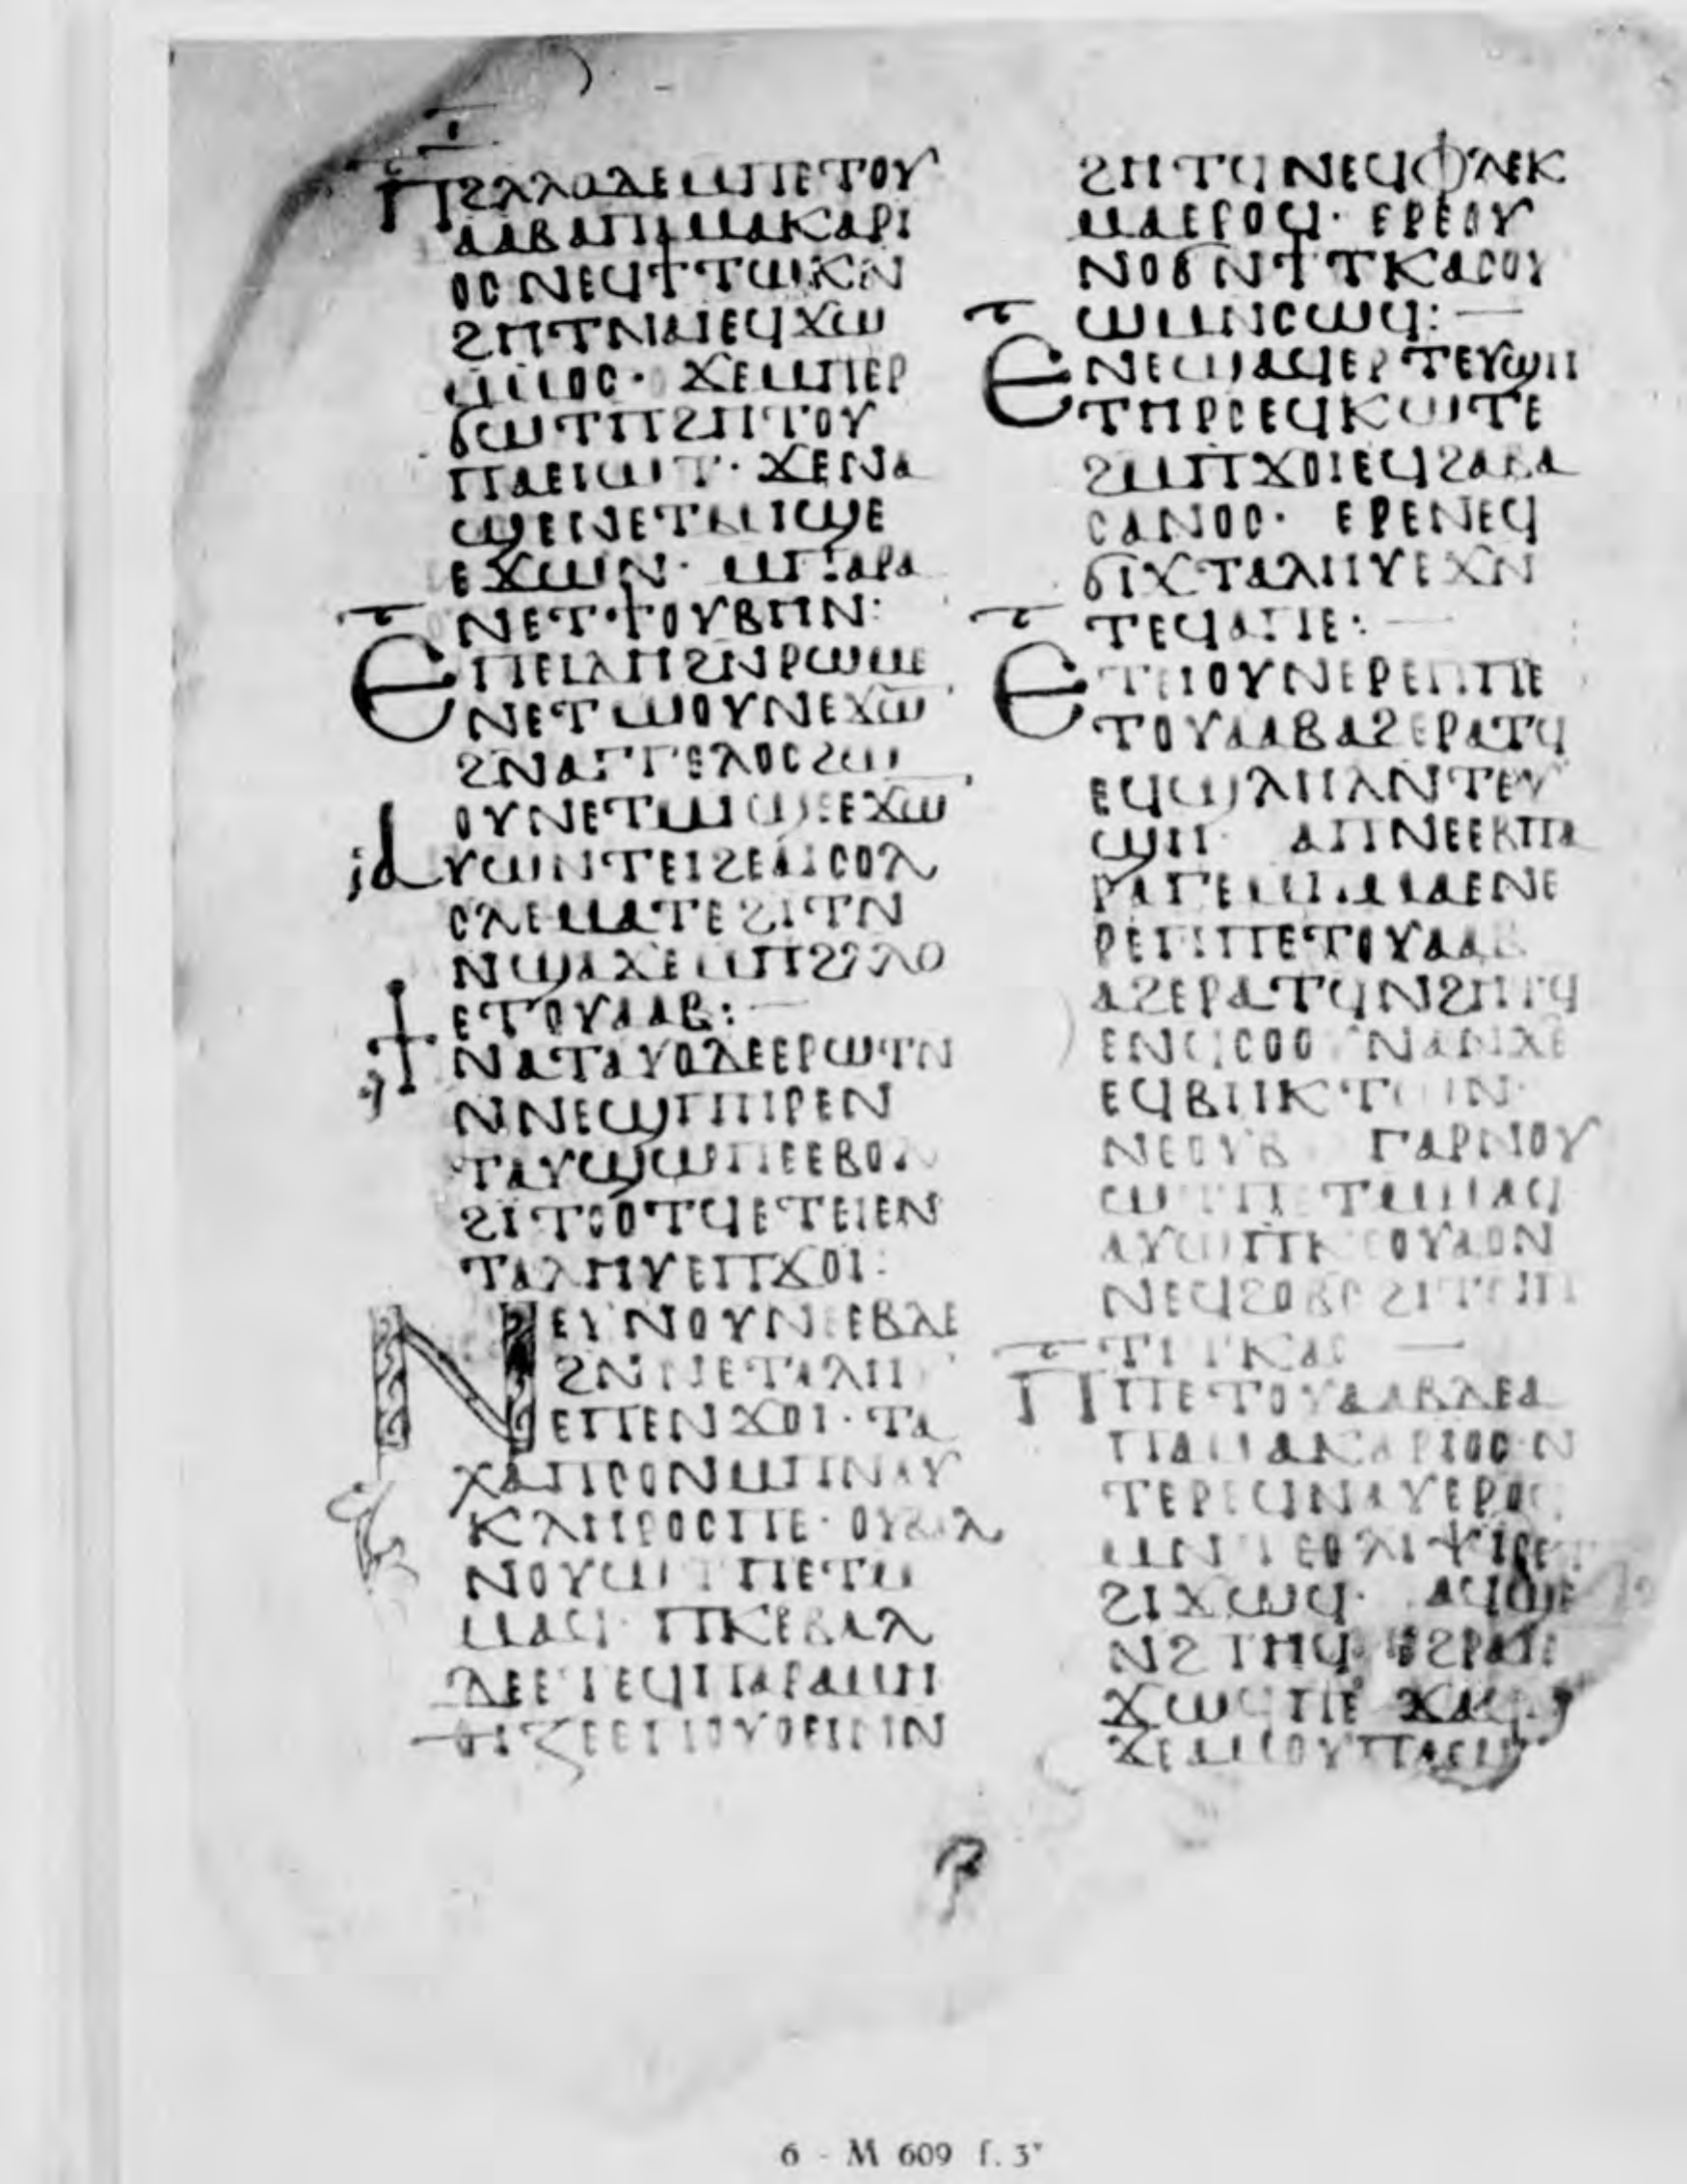 ⲡϩⲗⲗⲟⲇⲉⲙⲡⲉⲧⲟⲩ
ⲁⲁⲃⲁⲡⲁⲙⲁⲕⲁⲣⲓ
ⲟⲥⲛⲉϥϯⲧⲱⲕⲛ
ϩⲏⲧⲛⲁⲛⲉϥϫⲱ
ⲙⲙⲟⲥ· ϫⲉⲙⲡⲉⲣ
ϭⲱⲧⲡⲛϩⲏⲧⲟⲩ
ⲡⲁⲉⲓⲱⲧ· ϫⲉⲛⲁ
ϣⲉⲛⲉⲧⲙⲓϣⲉ
ⲉϫⲱⲛ· ⲙⲡⲁⲣⲁ
ⲛⲉⲧϯⲟⲩⲃⲏⲛ:
ⲉⲡⲉⲓⲇⲏϩⲛⲣⲱⲙⲉ
ⲛⲉⲧⲙⲟⲩⲛⲉϫⲱ
ϩⲛⲁⲅⲅⲉⲗⲟⲥϩⲱ
ⲟⲩⲛⲉⲧⲙⲓϣⲉⲉϫⲱ
ⲁⲩⲱⲛⲧⲉⲓϩⲉⲁⲛⲥⲟⲗ
ⲥⲗⲉⲙⲁⲧⲉϩⲓⲧⲛ
ⲛϣⲁϫⲉⲙⲡϩⲗⲗⲟ
ⲉⲧⲟⲩⲁⲁⲃ: —
ϯⲛⲁⲧⲁⲩⲟⲇⲉⲉⲣⲱⲧⲛ
ⲛⲛⲉϣⲡⲏⲣⲉⲛ
ⲧⲁⲩϣⲱⲡⲉⲉⲃⲟⲗ
ϩⲓⲧⲟⲟⲧϥⲉⲧⲉⲓⲉⲛ
ⲧⲁⲗⲏⲩⲉⲡϫⲟⲓ:
ⲛⲉⲩⲛⲟⲩⲛⲉⲉⲃⲗⲉ
ϩⲛⲛⲉⲧⲁⲗⲏ
ⲉⲡⲉⲛϫⲟⲓ· ⲧⲁ
ⲭⲁⲡⲥⲟⲛⲙⲡⲛⲁⲩ
ⲕⲗⲏⲣⲟⲥⲡⲉ· ⲟⲩⲃⲁⲗ
ⲛⲟⲩⲱⲧ ⲡⲉⲧⲙ
ⲙⲟϥ· ⲡⲕⲉⲃⲁⲗ
ⲇⲉⲉⲧⲉϥⲡⲁⲣⲁⲙⲏ
ⲟⲓⲍⲉⲉⲓⲟⲩⲟⲉⲓⲛⲛ
ϩⲏⲧϥⲛⲉϥⲫⲗⲉⲕ
ⲙⲁⲉⲣⲟϥ· ⲉⲣⲉⲟⲩ
ⲛⲟϭⲛϯⲧⲕⲁⲥⲟⲩ
ⲱⲙⲛⲥⲱϥ: —
ⲉⲛⲉϣⲁϥⲉⲣⲧⲉⲩϣⲏ
ⲧⲏⲣⲥⲉϥⲕⲱⲧⲉ
ϩⲙⲡϫⲟⲓⲉϥϩⲁⲃⲁ
ⲥⲁⲛⲟⲥ· ⲉⲣⲉⲛⲉϥ
ϭⲓϫⲧⲁⲗⲏⲩⲉϫⲛ
ⲧⲉϥⲁⲡⲉ: —
ⲉⲧⲓⲟⲩⲛⲉⲣⲉⲡⲡⲉ
ⲧⲟⲩⲁⲁⲃⲁϩⲉⲣⲁⲧϥ
ⲉϥϣⲗⲏⲗⲛⲧⲉⲩ
ϣⲏ ⲁⲡⲛⲉⲉⲃⲡⲁ
ⲣⲁⲅⲉⲙⲙⲁⲉⲛⲉ
ⲣⲉⲡⲡⲉⲧⲟⲩⲁⲁⲃ
ⲁϩⲉⲣⲁⲧϥⲛϩⲏⲧϥ
ⲉⲛϥⲥⲟⲟⲩⲛⲁⲛϫⲉ
ⲉϥⲃⲏⲕⲧⲱⲛ·
ⲛⲉⲟⲩⲃ ⲅⲁⲣⲛⲟⲩ
ⲱⲧⲡⲉⲧⲙⲙⲁϥ
ⲁⲩⲱⲡⲕⲉⲟⲩⲁⲟⲛ
ⲛⲉϥϩⲟⲃⲥϩⲓⲧⲙⲡ
ⲧⲓⲧⲕⲁⲥ —
ⲡⲡⲉⲧⲟⲩⲁⲁⲃⲇⲉⲁ
ⲡⲁⲙⲁⲕⲁⲣⲓⲟⲥⲛ
ⲧⲉⲣⲉϥⲛⲁⲩⲉⲣⲟϥ
ⲙⲛⲧⲉⲑⲗⲓⲯⲓⲥⲉⲧ
ϩⲓϫⲱϥ· ⲁϥϣⲛ
ⲛϩⲧⲏϥ ⲉϩⲣⲁⲓⲉ
ϫⲱϥⲡⲉ
ϫⲉⲁⲙⲟⲩⲡⲁⲉⲓⲱ
6 - M 609 f. 3ᵛ